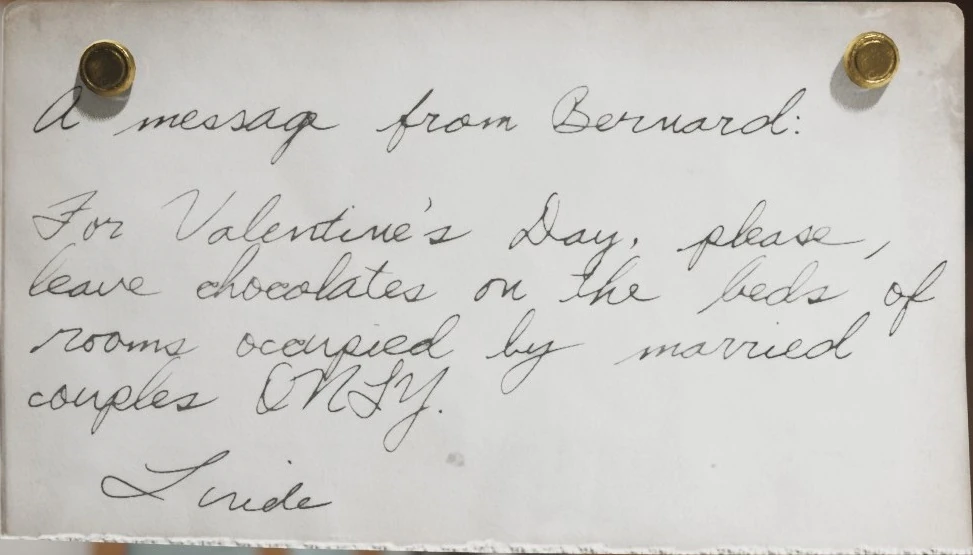 A message from Bernard:
For Valentine's Day, please,
leave chocolates on the beds of
rooms occupied by married
couples ONLY.